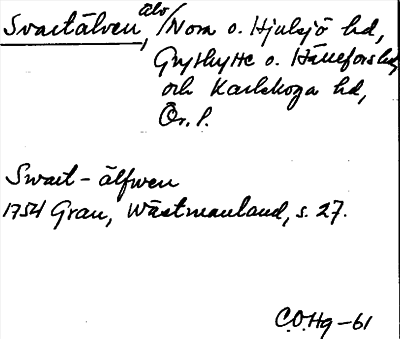 Svartälven, älv, Nora o. Hjulsjö hd,
Grythytte o. Hällefors hd,
och Karlskoga hd,
Ör. l.
Swart-älfwen
1754 Grau, Wästmanland, s. 27.
C.O.Hg-61